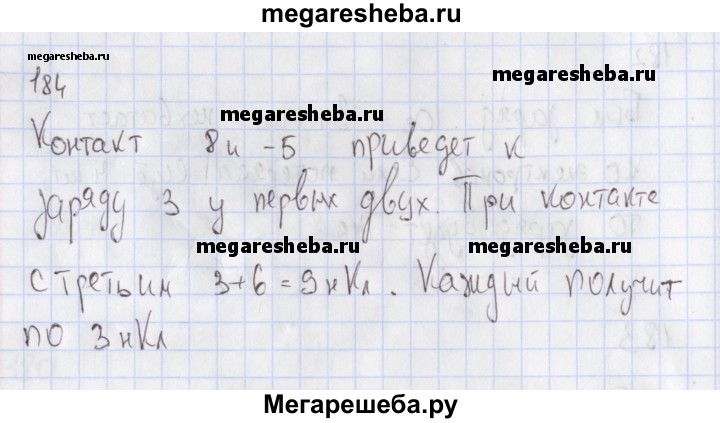 megaresheba.ru
megaresheba.ru
184
megaresheba.ru
megaresheba.ru
Контакт 8 и -5 приведет к
заряду 3 у первых двух. При контакте
megaresheba.ru
megaresheba.ru
с третьим 3+6=9нКл. Каждый получит
по 3нКл
Мегарешеба.ру